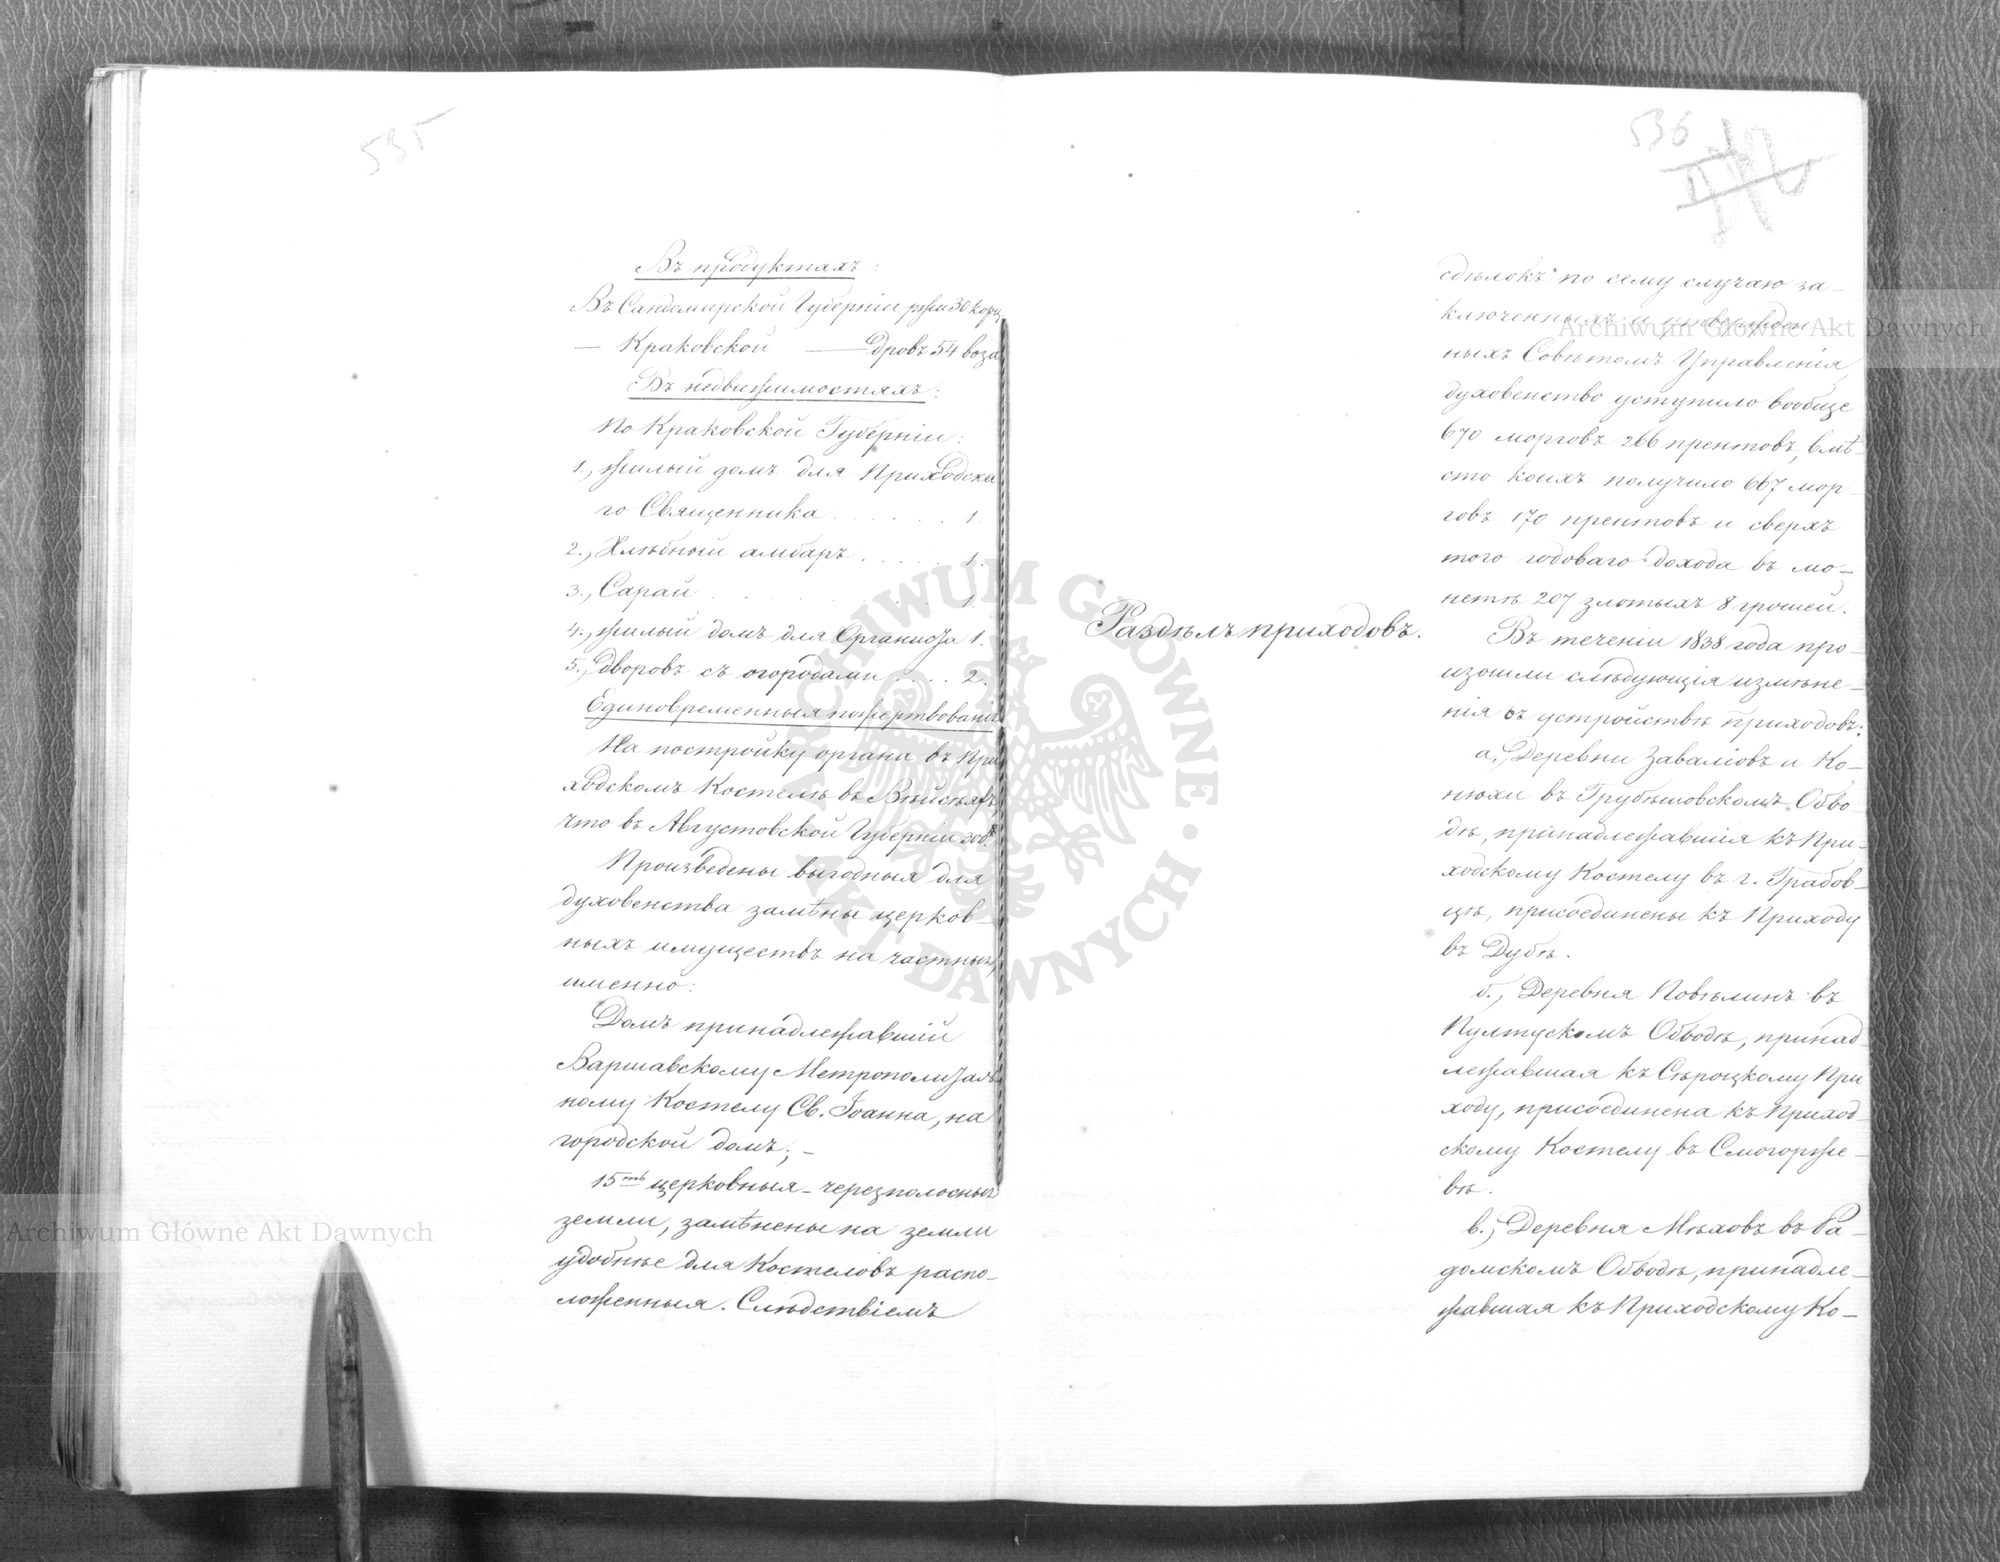 535
Въ продуктахъ:
Въ Сандомирской Губерніи ржи 30 корц.
— Краковской — дровъ 54 воза
Въ недвижимостяхъ:
По Краковской Губерніи:
1., жилый домъ для Приходска
го Священника . . . . . . 1.
2., Хлѣбный амбаръ . . . . . 1.
3., Сарай . . . . . . . 1.
4., жилый домъ для Органиста 1.
5., Дворовъ съ огородами . . . . 2.
Единовременныя пожертвованія
На постройку органа въ При
ходскомъ Костелѣ въ
что въ Августовской Губерніи
Произведены выгодныя для
духовенства замѣны церков-
ныхъ имуществъ на частныя,
именно:
Домъ принадлежавшій
Варшавскому Метрополиталь
ному Костелу Св. Іоанна, на
городской домъ; –
15ть церковныя-черезполосныя
земли, замѣнены на земли
удобнѣе для Костеловъ распо-
ложенныя. Слѣдствіемъ
536
сдѣлокъ по сему случаю за-
ключенныхъ и утвержден
ныхъ Совѣтомъ Управленія,
духовенство уступило вообще
670 морговъ 266 прентовъ, вмѣ-
сто коихъ получило 667 мор-
говъ 170 прентовъ и сверхъ
того годоваго дохода въ мо-
нетѣ 207 злотыхъ 8 грошей.
Раздѣлъ приходовъ.
Въ теченіи 1838 года про-
изошли слѣдующія измѣне-
нія въ устройствѣ приходовъ:
а., Деревни Заваліовъ и Ко-
нюхи въ Грубѣшовскомъ Обво-
дѣ, принадлежавшія къ При-
ходскому Костелу въ г. Грабов-
цѣ, присоединены къ Приходу
въ Дубѣ.
б., Деревня Повѣлинъ въ
Пултускомъ Обводѣ, принад-
лежавшая къ Сѣроцкому При
ходу, присоединена къ Приход-
скому Костелу въ Смогорже-
вѣ.
в., Деревня Мѣховъ въ Ра-
домскомъ Обводѣ, принадле-
жавшая къ Приходскому Ко-
Archiwum Główne Akt Dawnych
Archiwum Główne Akt Dawnych
ARCHIWUM GŁÓWNE · AKT DAWNYCH ·